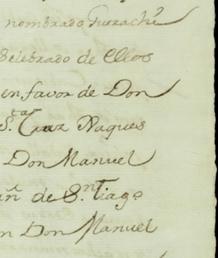 nombrado Gurachi
celebrado de ellos
en favor de Don
S.ta Cruz Vaques
Don Manuel
de S.n Tiago
n Don Manuel